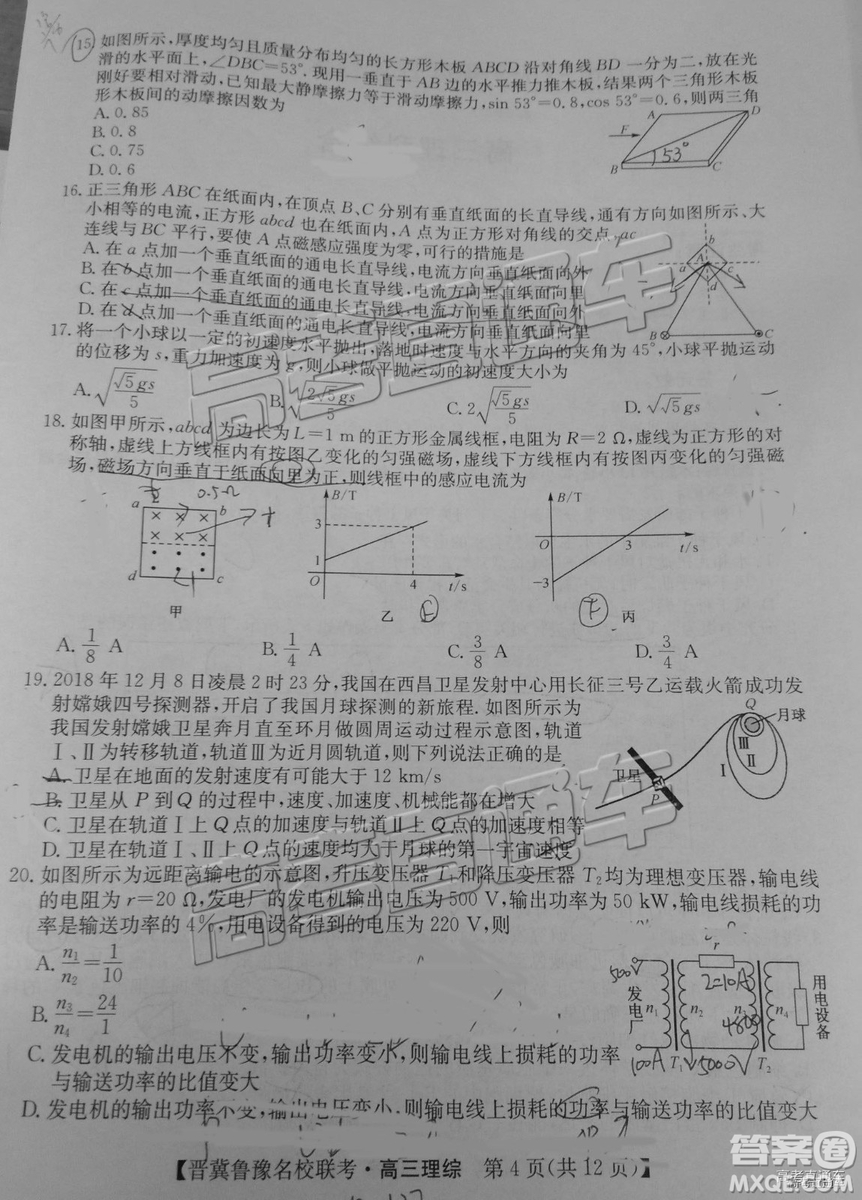 15. 如图所示，厚度均匀且质量分布均匀的长方形木板 ABCD 沿对角线 BD 一分为二，放在光
滑的水平面上，∠DBC=53°. 现用一垂直于 AB 边的水平推力推木板，结果两个三角形木板
刚好要相对滑动，已知最大静摩擦力等于滑动摩擦力，sin 53°=0.8，cos 53°=0.6，则两三角
形木板间的动摩擦因数为
A. 0.85
B. 0.8
C. 0.75
D. 0.6
F
A
D
B
C
53°
16. 正三角形 ABC 在纸面内，在顶点 B、C 分别有垂直纸面的长直导线，通有方向如图所示、大
小相等的电流，正方形 abcd 也在纸面内，A 点为正方形对角线的交点，ac
连线与 BC 平行，要使 A 点磁感应强度为零，可行的措施是
A. 在 a 点加一个垂直纸面的通电长直导线，电流方向垂直纸面向外
B. 在 b 点加一个垂直纸面的通电长直导线，电流方向垂直纸面向里
C. 在 c 点加一个垂直纸面的通电长直导线，电流方向垂直纸面向外
D. 在 d 点加一个垂直纸面的通电长直导线，电流方向垂直纸面向里
b
A
a
c
d
B
C
17. 将一个小球以一定的初速度水平抛出，落地时速度与水平方向的夹角为 45°，小球平抛运动
的位移为 s，重力加速度为 g，则小球做平抛运动的初速度大小为
A. √(√5gs/5) B. √(2√5gs/5) C. 2√(√5gs/5) D. √(√5gs)
18. 如图甲所示，abcd 为边长为 L=1 m 的正方形金属线框，电阻为 R=2 Ω，虚线为正方形的对
称轴，虚线上方线框内有按图乙变化的匀强磁场，虚线下方线框内有按图丙变化的匀强磁
场，磁场方向垂直于纸面向里为正，则线框中的感应电流为
0.5Ω
a
b
d
c
甲
B/T
3
1
O
4
t/s
乙
B/T
O
3
t/s
−3
丙
下
A. 1/8 A B. 1/4 A C. 3/8 A D. 3/4 A
19. 2018 年 12 月 8 日凌晨 2 时 23 分，我国在西昌卫星发射中心用长征三号乙运载火箭成功发
射嫦娥四号探测器，开启了我国月球探测的新旅程. 如图所示为
我国发射嫦娥卫星奔月直至环月做圆周运动过程示意图，轨道
Ⅰ、Ⅱ为转移轨道，轨道Ⅲ为近月圆轨道，则下列说法正确的是
A. 卫星在地面的发射速度有可能大于 12 km/s
B. 卫星从 P 到 Q 的过程中，速度、加速度、机械能都在增大
C. 卫星在轨道Ⅰ上 Q 点的加速度与轨道Ⅱ上 Q 点的加速度相等
D. 卫星在轨道Ⅱ上 Q 点的速度均大于月球的第一宇宙速度
Q
月球
Ⅲ
Ⅱ
Ⅰ
卫星
P
20. 如图所示为远距离输电的示意图，升压变压器 T₁ 和降压变压器 T₂ 均为理想变压器，输电线
的电阻为 r=20 Ω，发电厂的发电机输出电压为 500 V，输出功率为 50 kW，输电线损耗的功
率是输送功率的 4%，用电设备得到的电压为 220 V，则
A. n₁/n₂=1/10
B. n₃/n₄=24/1
C. 发电机的输出电压不变，输出功率变小，则输电线上损耗的功率
与输送功率的比值变大
D. 发电机的输出功率不变，输出电压变小，则输电线上损耗的功率与输送功率的比值变大
r
500V
发电厂
n₁
n₂
n₄
用电设备
4800
100A
T₁
5000V
T₂
【晋冀鲁豫名校联考·高三理综 第 4 页(共 12 页)】
高考直通车
答案圈
MXQE.COM